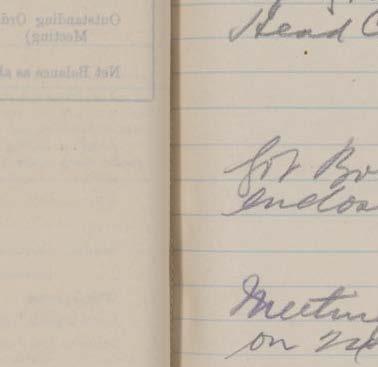 Outstanding Ord
Meeting)
Net Balance as s
Head C
got Bo
endos
Meetin
on